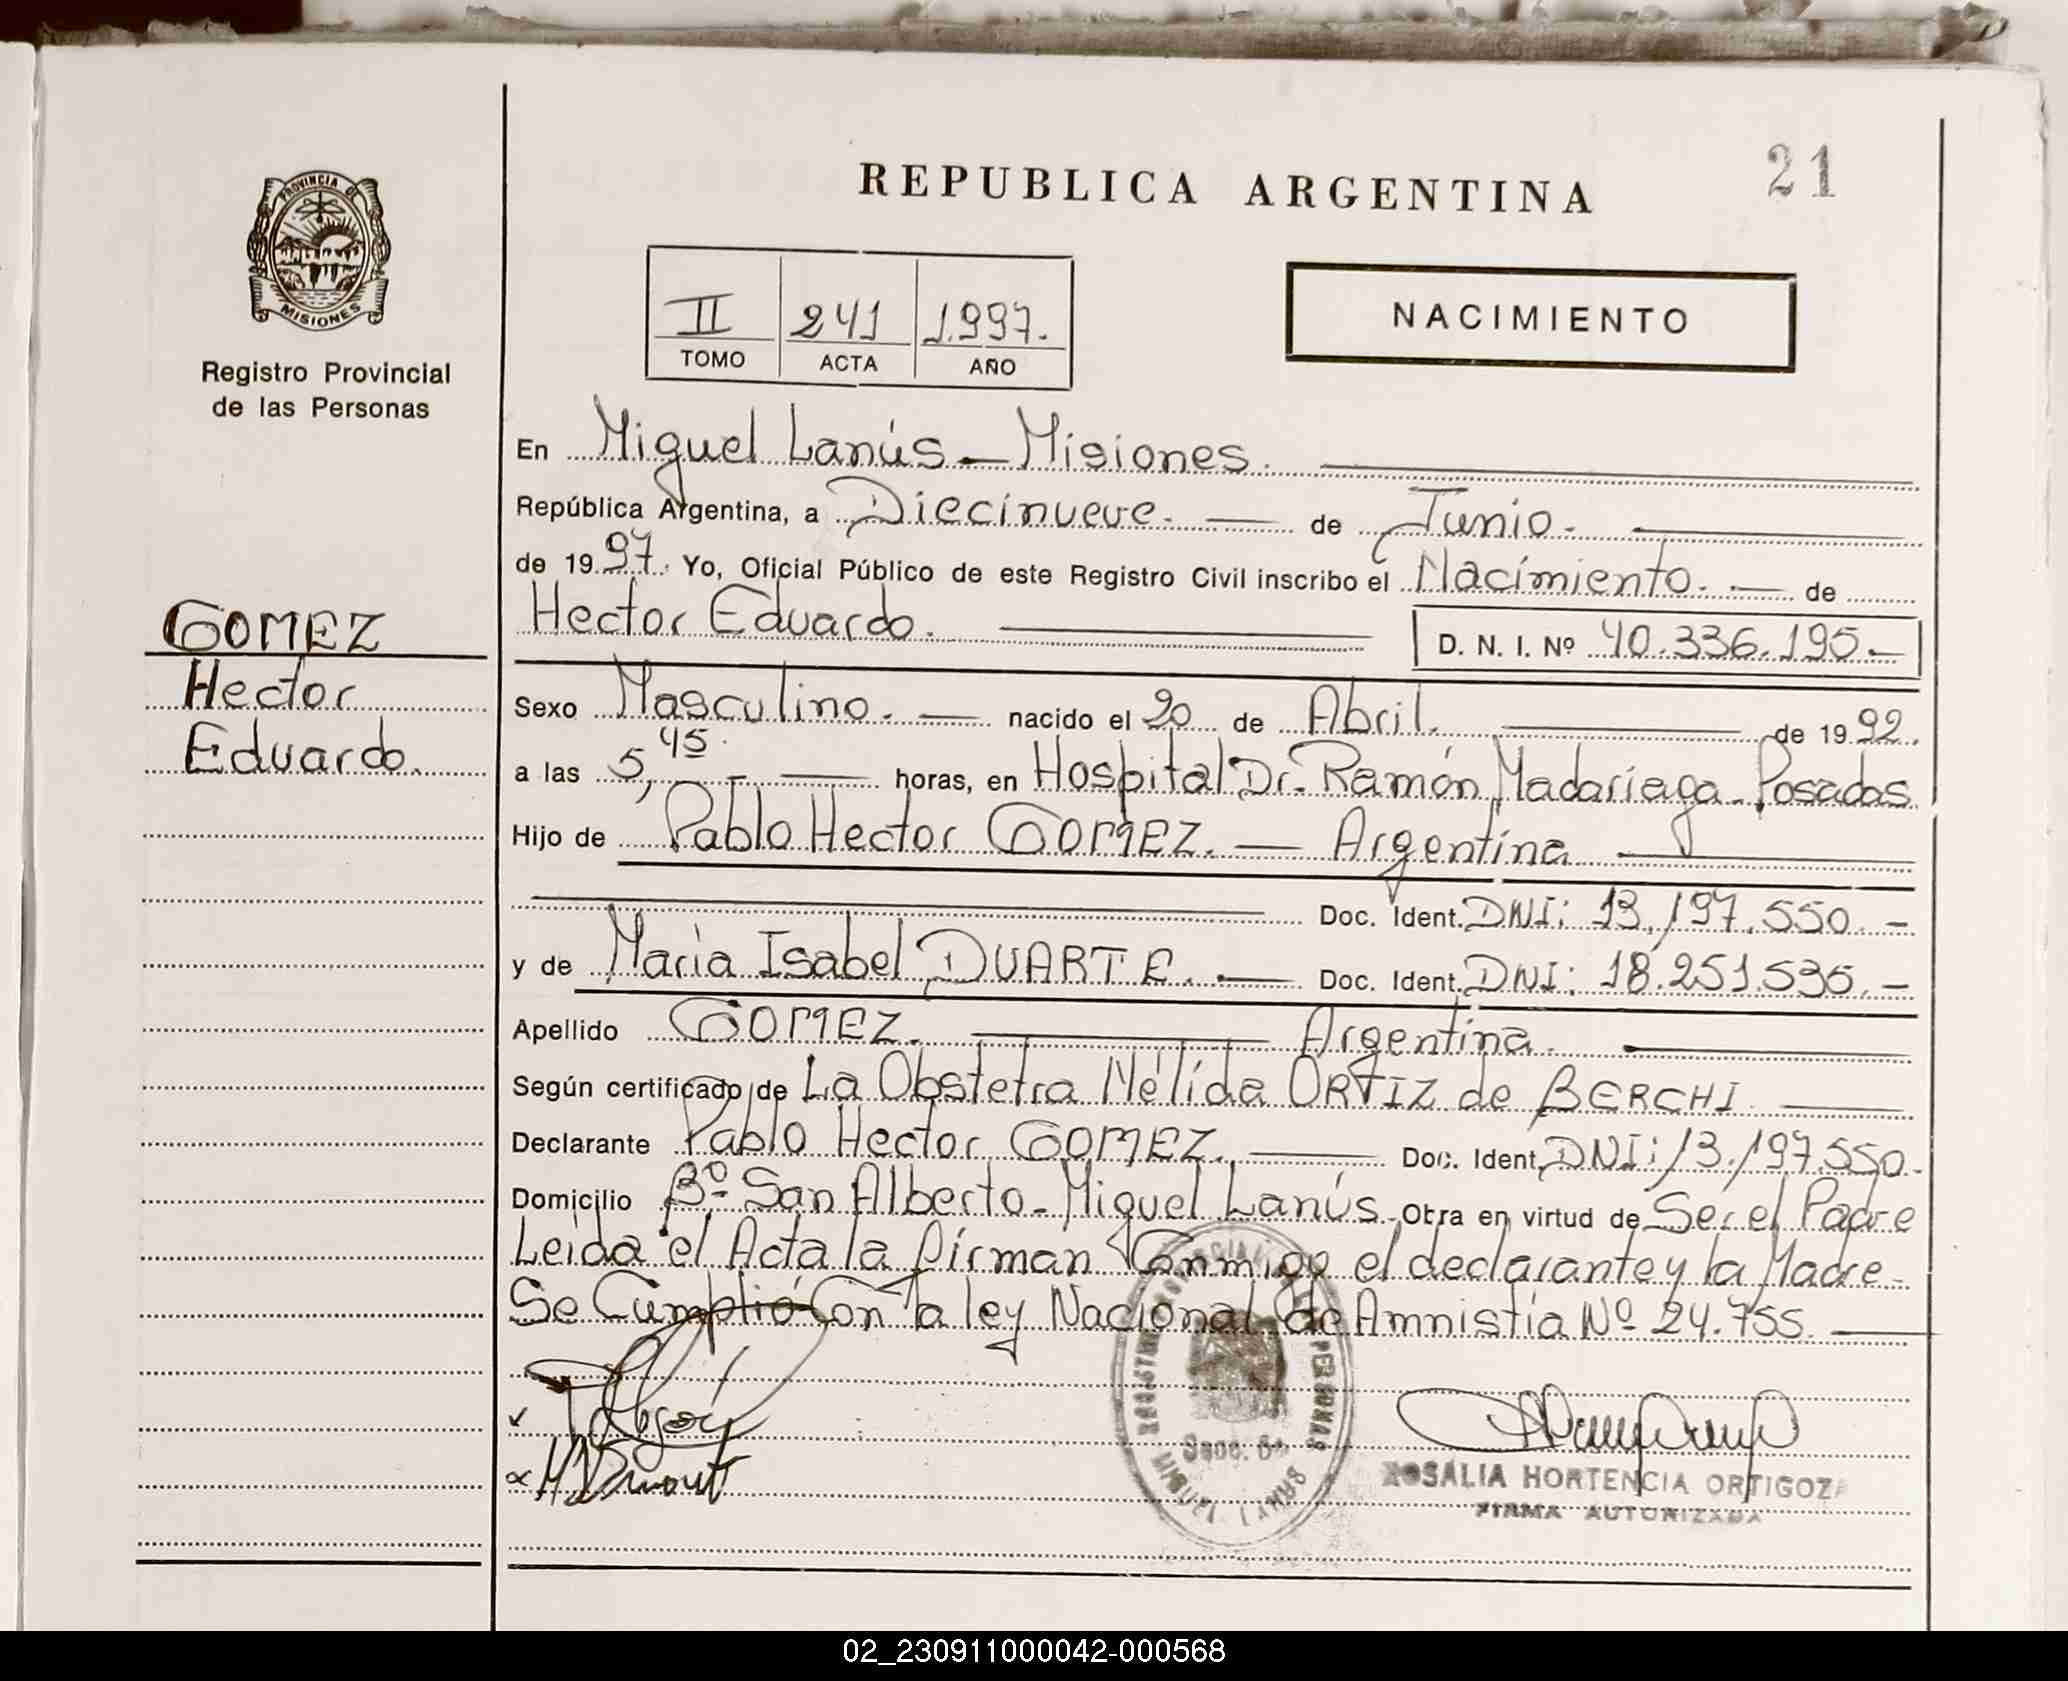 REPUBLICA ARGENTINA
21
PROVINCIA DE
MISIONES
Registro Provincial
de las Personas
II 241 1.997.
TOMO ACTA AÑO
NACIMIENTO
En Miguel Lanús - Misiones.
República Argentina, a Diecinueve. de Junio.
de 1997. Yo, Oficial Público de este Registro Civil inscribo el Nacimiento. de
Hector Eduardo. D. N. I. Nº 40.336.195.-
GOMEZ
Hector
Eduardo.
Sexo Masculino. nacido el 20 de Abril. de 1992.
a las 5,45. horas, en Hospital Dr. Ramón Madariaga - Posadas
Hijo de Pablo Hector GOMEZ. Argentina
Doc. Ident. DNI: 13.197.550.-
y de Maria Isabel DUARTE. Doc. Ident. DNI: 18.251.535.-
Apellido GOMEZ. Argentina.
Según certificado de La Obstetra Nélida ORTIZ de BERCHI
Declarante Pablo Hector GOMEZ. Doc. Ident. DNI: 13.197.550.
Domicilio Bº San Alberto - Miguel Lanús. Obra en virtud de Ser el Padre
Leida el Acta la firman Conmigo el declarante y la Madre.
Se Cumplió Con la ley Nacional de Amnistía Nº 24.755.
ROSALIA HORTENCIA ORTIGOZA
FIRMA AUTORIZADA
02_230911000042-000568